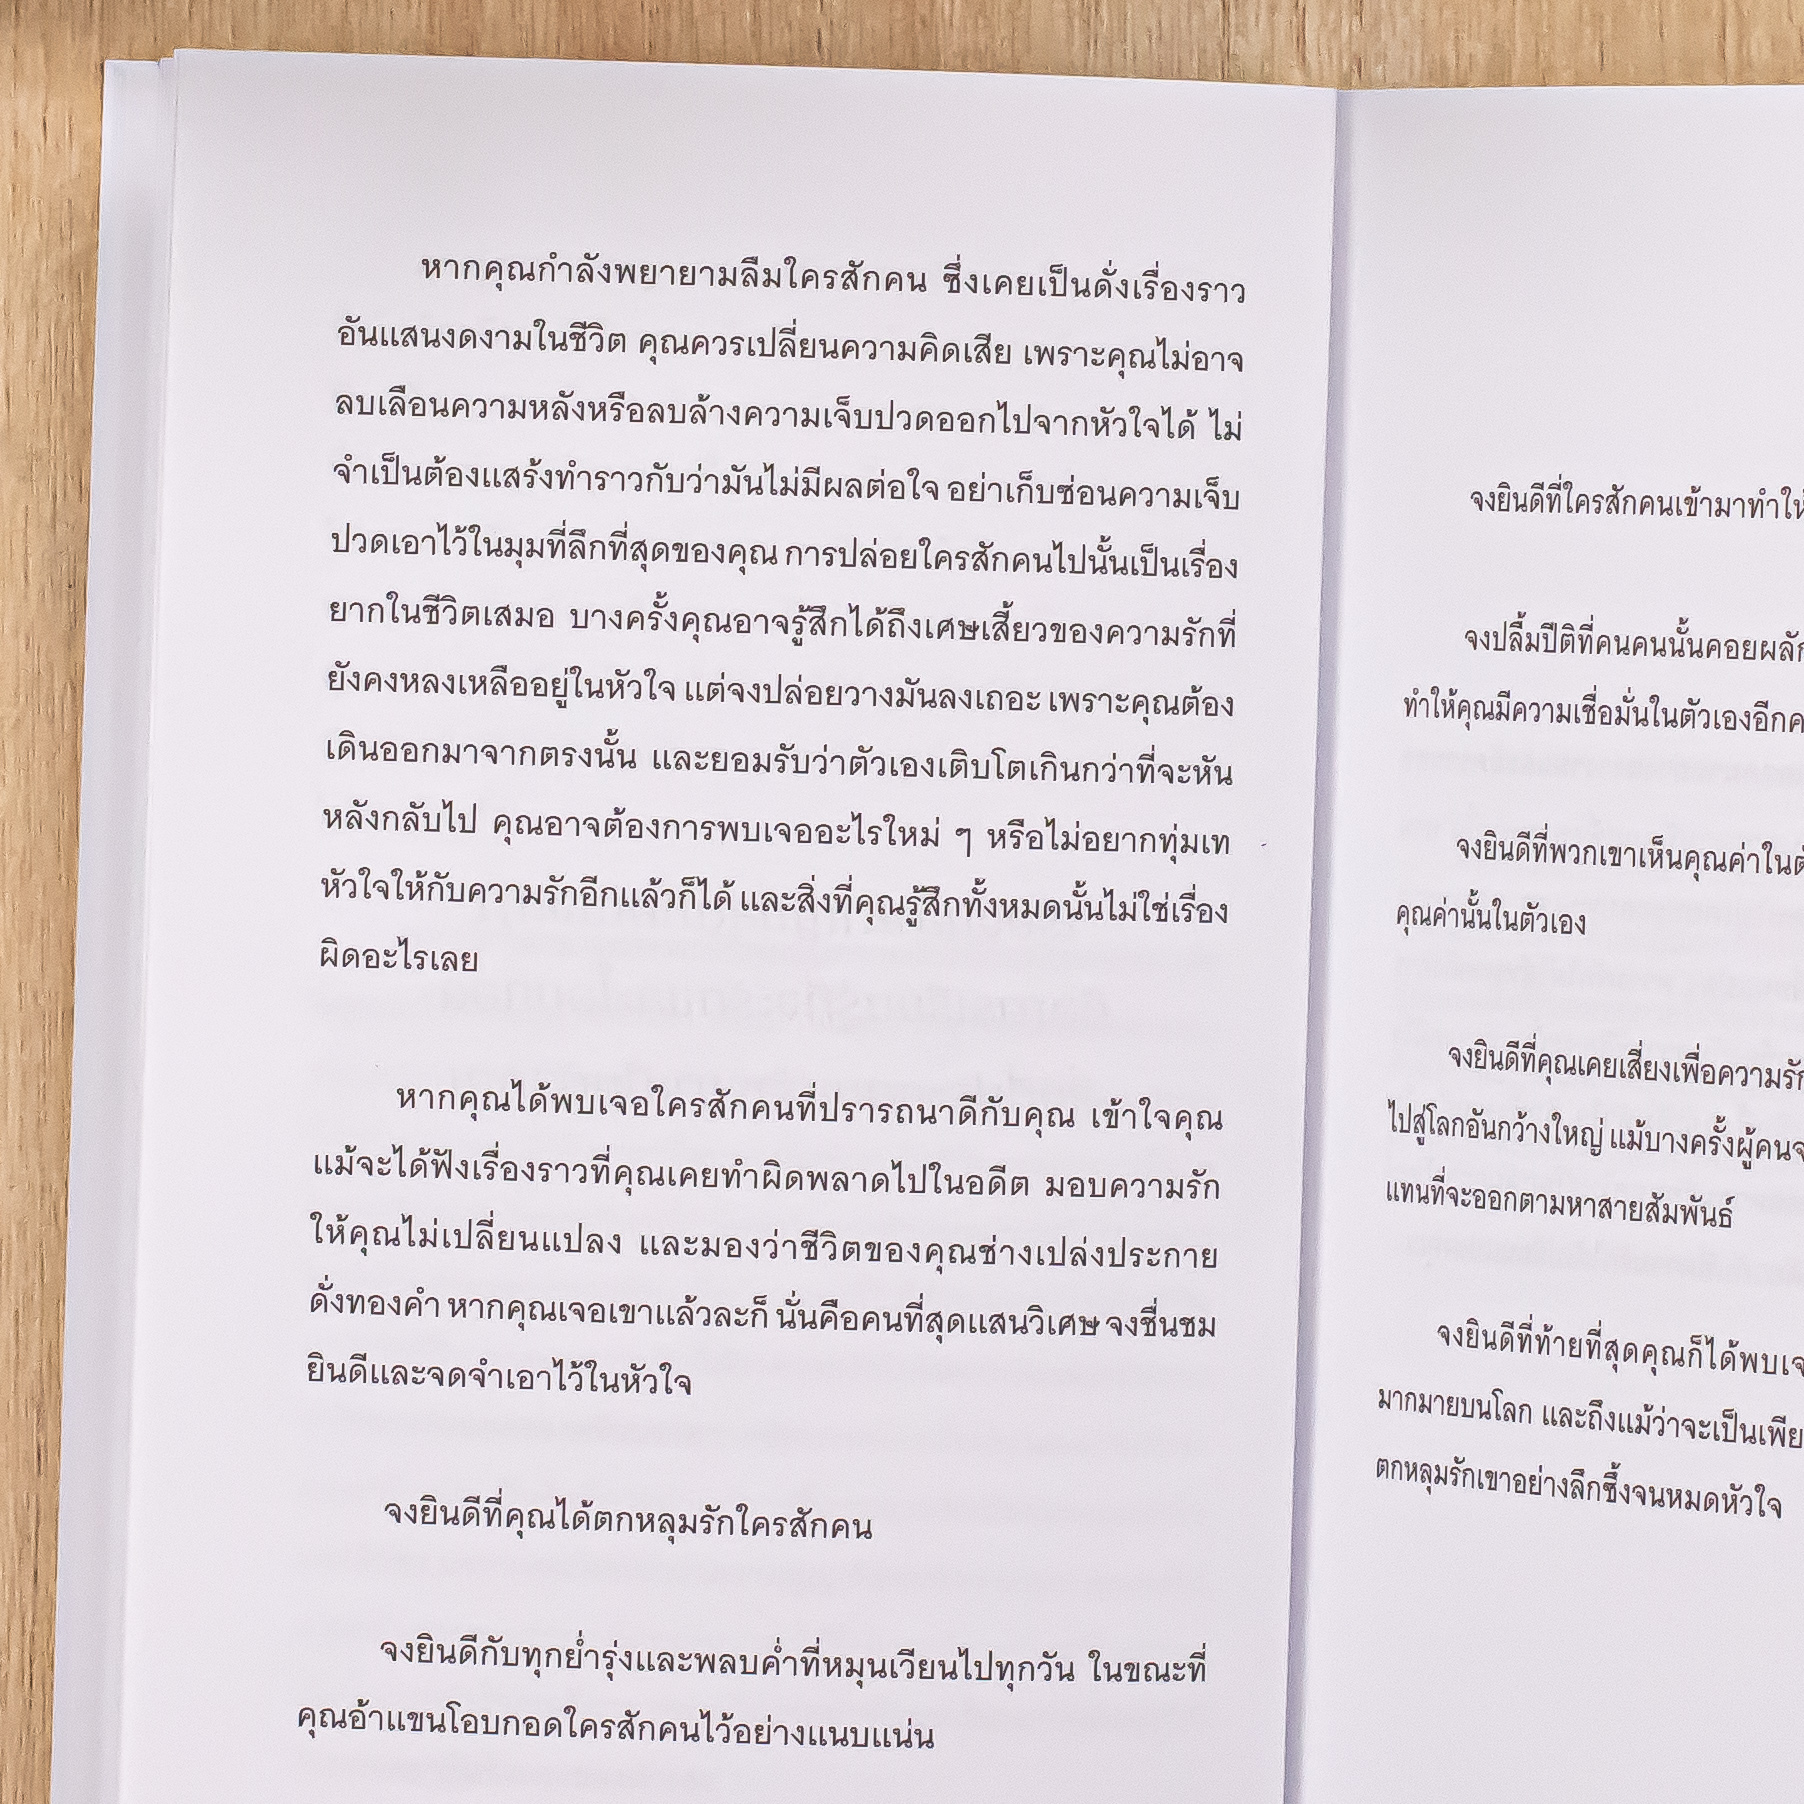 หากคุณกำลังพยายามลืมใครสักคน ซึ่งเคยเป็นดั่งเรื่องราว
อันแสนงดงามในชีวิต คุณควรเปลี่ยนความคิดเสีย เพราะคุณไม่อาจ
ลบเลือนความหลังหรือลบล้างความเจ็บปวดออกไปจากหัวใจได้ ไม่
จำเป็นต้องแสร้งทำราวกับว่ามันไม่มีผลต่อใจ อย่าเก็บซ่อนความเจ็บ
ปวดเอาไว้ในมุมที่ลึกที่สุดของคุณ การปล่อยใครสักคนไปนั้นเป็นเรื่อง
ยากในชีวิตเสมอ บางครั้งคุณอาจรู้สึกได้ถึงเศษเสี้ยวของความรักที่
ยังคงหลงเหลืออยู่ในหัวใจ แต่จงปล่อยวางมันลงเถอะ เพราะคุณต้อง
เดินออกมาจากตรงนั้น และยอมรับว่าตัวเองเติบโตเกินกว่าที่จะหัน
หลังกลับไป คุณอาจต้องการพบเจออะไรใหม่ ๆ หรือไม่อยากทุ่มเท
หัวใจให้กับความรักอีกแล้วก็ได้ และสิ่งที่คุณรู้สึกทั้งหมดนั้นไม่ใช่เรื่อง
ผิดอะไรเลย
หากคุณได้พบเจอใครสักคนที่ปรารถนาดีกับคุณ เข้าใจคุณ
แม้จะได้ฟังเรื่องราวที่คุณเคยทำผิดพลาดไปในอดีต มอบความรัก
ให้คุณไม่เปลี่ยนแปลง และมองว่าชีวิตของคุณช่างเปล่งประกาย
ดั่งทองคำ หากคุณเจอเขาแล้วละก็ นั่นคือคนที่สุดแสนวิเศษ จงชื่นชม
ยินดีและจดจำเอาไว้ในหัวใจ
จงยินดีที่คุณได้ตกหลุมรักใครสักคน
จงยินดีกับทุกย่ำรุ่งและพลบค่ำที่หมุนเวียนไปทุกวัน ในขณะที่
คุณอ้าแขนโอบกอดใครสักคนไว้อย่างแนบแน่น
จงยินดีที่ใครสักคนเข้ามาทำให้
จงปลื้มปีติที่คนคนนั้นคอยผลัก
ทำให้คุณมีความเชื่อมั่นในตัวเองอีกค
จงยินดีที่พวกเขาเห็นคุณค่าในตั
คุณค่านั้นในตัวเอง
จงยินดีที่คุณเคยเสี่ยงเพื่อความรัก
ไปสู่โลกอันกว้างใหญ่ แม้บางครั้งผู้คนจ
แทนที่จะออกตามหาสายสัมพันธ์
จงยินดีที่ท้ายที่สุดคุณก็ได้พบเจ
มากมายบนโลก และถึงแม้ว่าจะเป็นเพีย
ตกหลุมรักเขาอย่างลึกซึ้งจนหมดหัวใจ